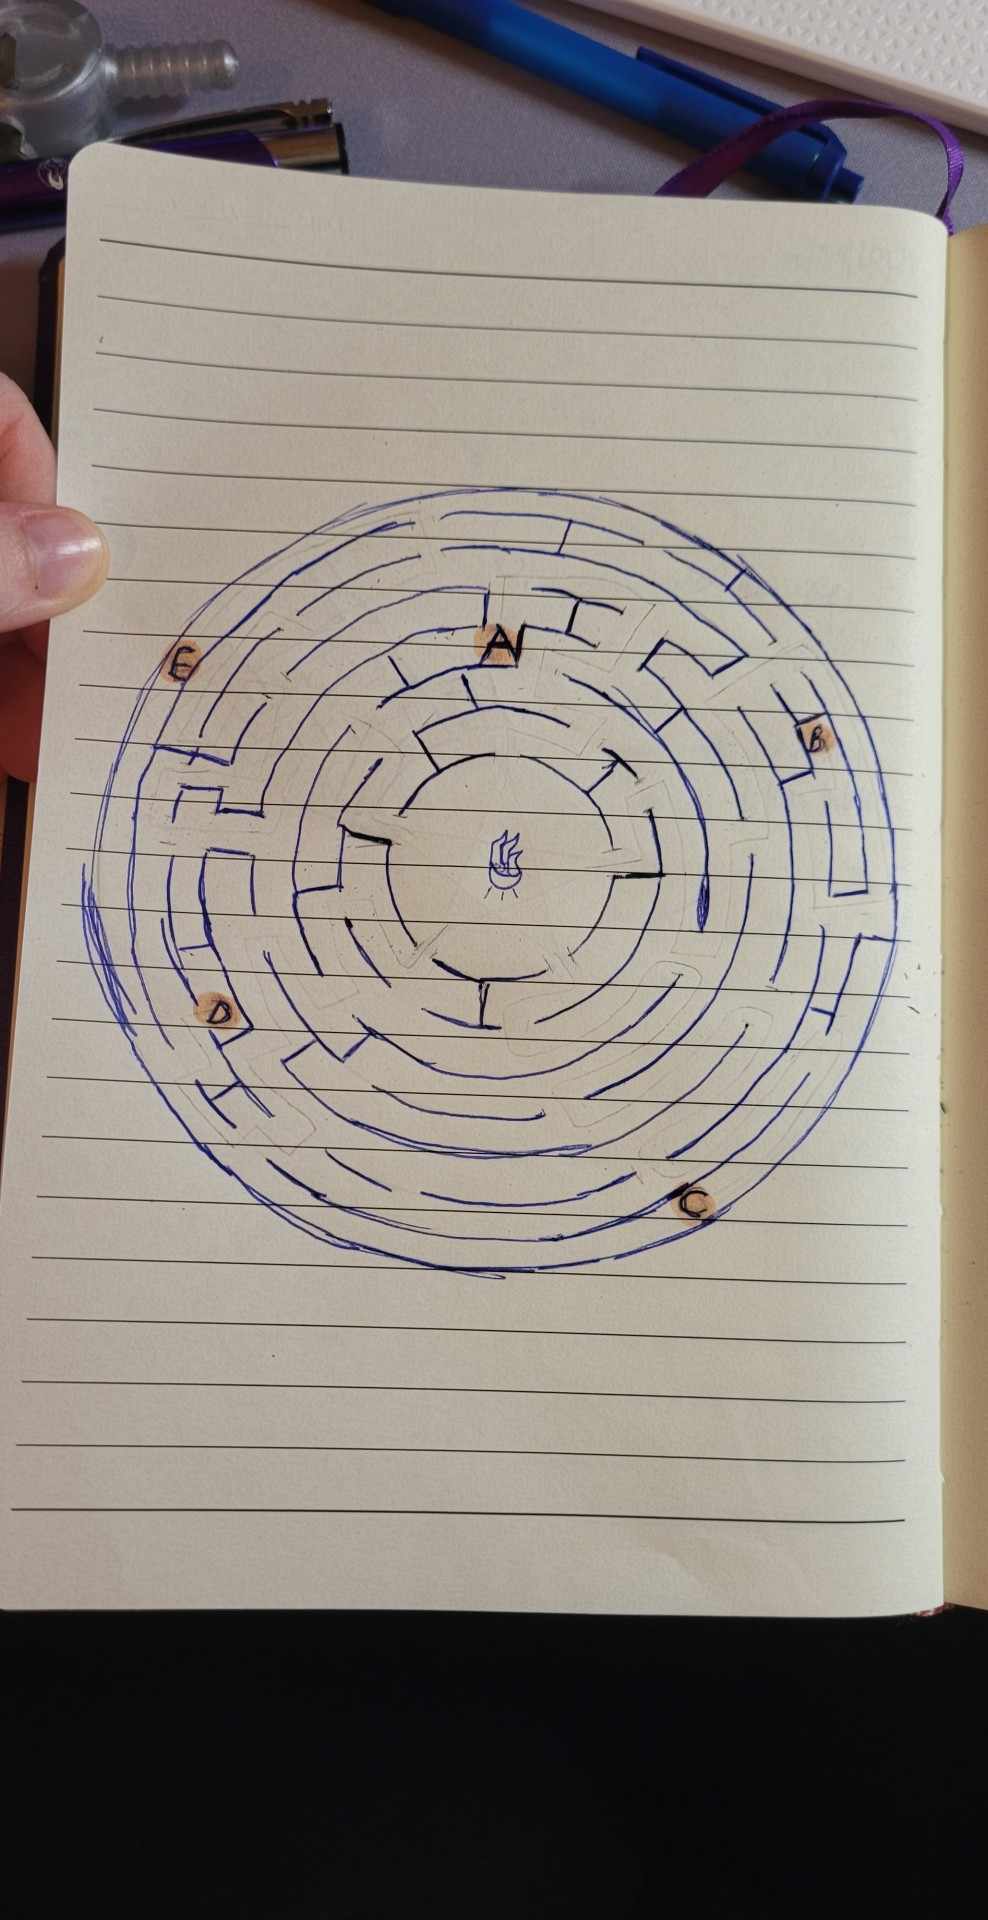 A
E
B
D
C